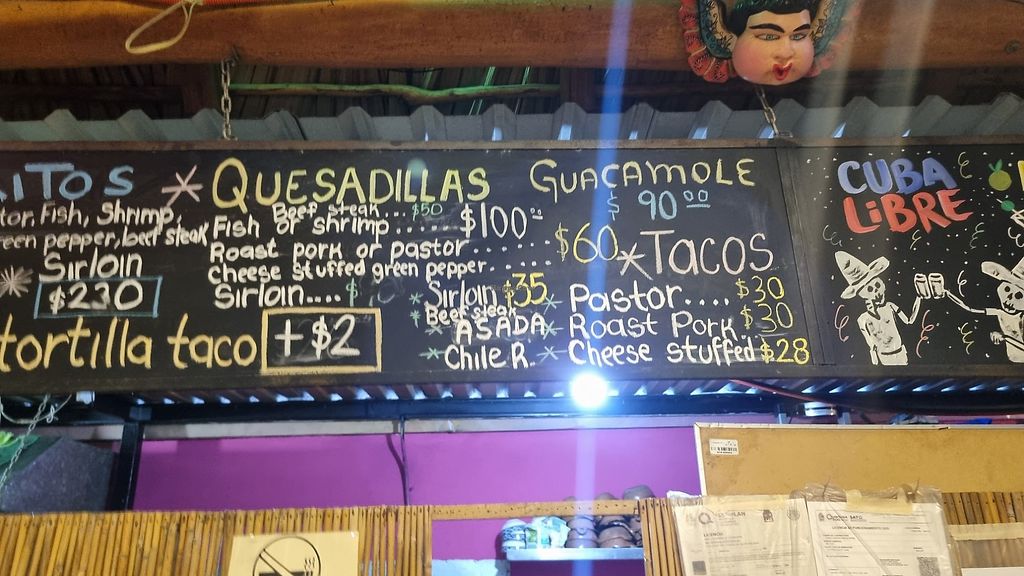 ITOS
tor, Fish, Shrimp,
een pepper, beef steak
Sirloin
$230
tortilla taco + $2
* QUESADILLAS
Beef steak... $50
Fish or shrimp...... $100.00
Roast pork or pastor......
Cheese stuffed green pepper...... $60
Sirloin.... $
GUACAMOLE
$ 90.00
*TACOS
* Sirloin $35
Beef steak
* ASADA
* Chile R. *
Pastor.... $30
Roast Pork $30
Cheese stuffed $28
CUBA
LIBRE
LICENCIA